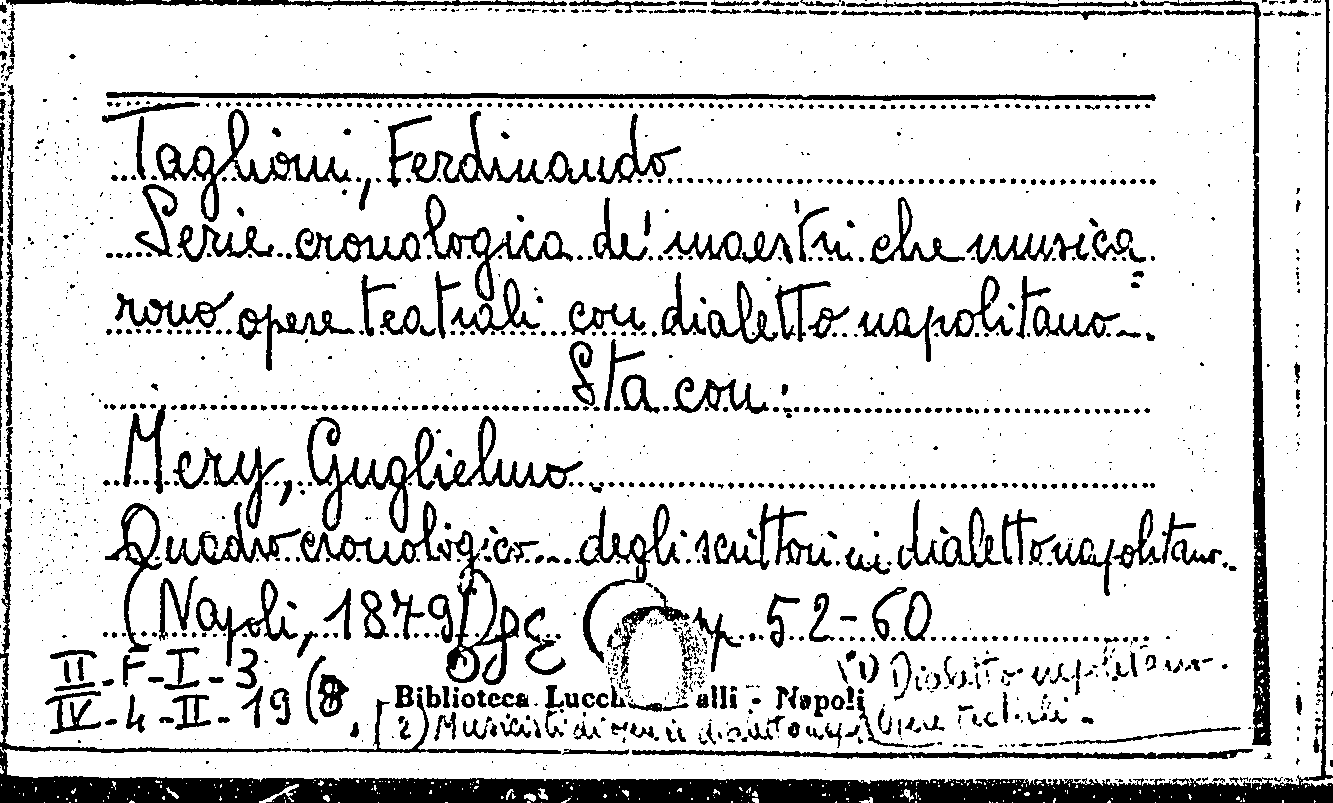 Taglioni, Ferdinando
Serie cronologica de' maestri che musica=
rono opere teatrali con dialetto napolitano.
Sta con:
Mery, Guglielmo.
Quadro cronologico... degli scrittori in dialetto napolitano.
(Napoli, 1879) pp. 52-60
II-F-I-3
IV-4-II-19 (8.
Biblioteca Lucch alli - Napoli
1) Dialetto napolitano.
2) Musicisti di opere in dialetto nap. Opere teatrali.